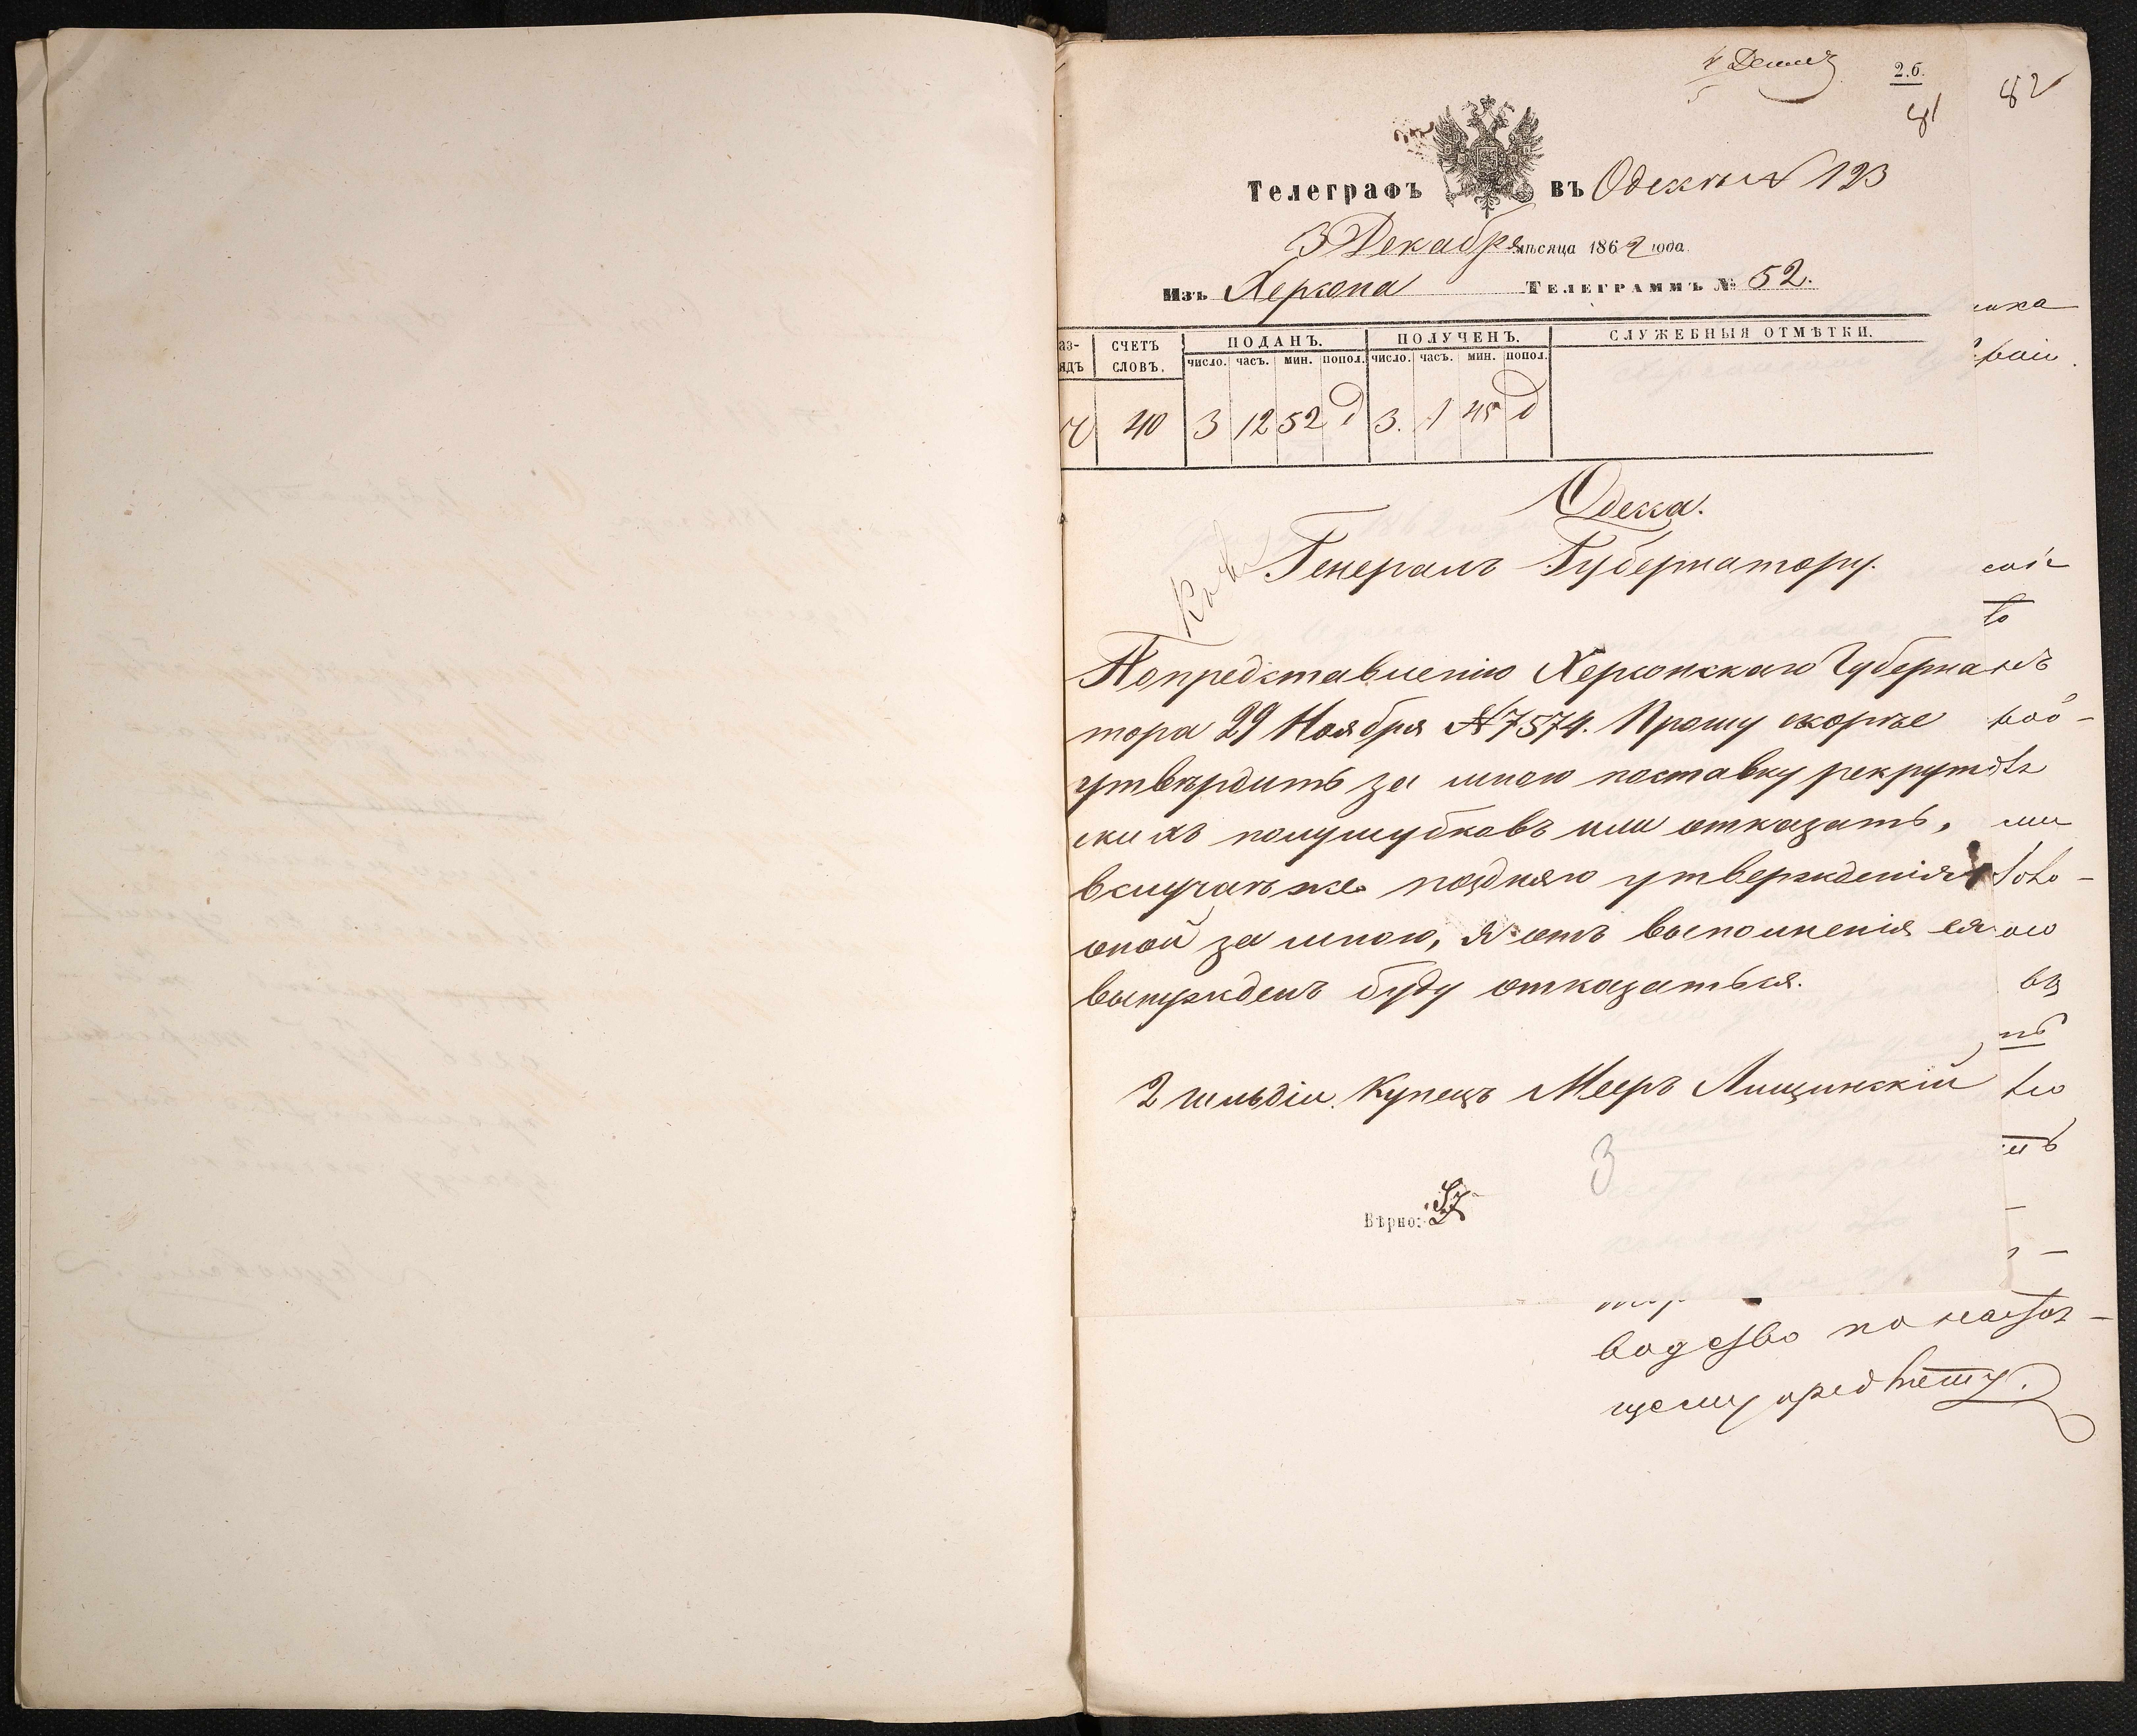 4 Декаб
2.б.
81
82
Телеграфъ въ Одессѣ № 123
3 Декабря мѣсяца 1862 года.
Изъ Херсона Телеграммъ № 52.
аз-
ядъ
СЧЕТЪ СЛОВЪ.
ПОДАНЪ.
ПОЛУЧЕНЪ.
СЛУЖЕБНЫЯ ОТМѢТКИ.
число. часъ. мин. попол. число. часъ. мин. попол.
40 3 12 52 д 3. 1 45 д
Одесса.
Генералъ Губернатору.
Попредставленію Херсонскаго Губерна
тора 29 Ноября № 7574. Прошу скорѣе
утвѣрдить за мною поставку рекрут
скихъ полушубковъ или отказать,
вслучаѣ же поздняго утвержденія
оной за мною, я отъ выполненія ея
вынужденъ буду отказаться.
2 гильдіи Купецъ Мееръ Лищинскій
3
Вѣрно:
водство по настоя-
щему предмету.